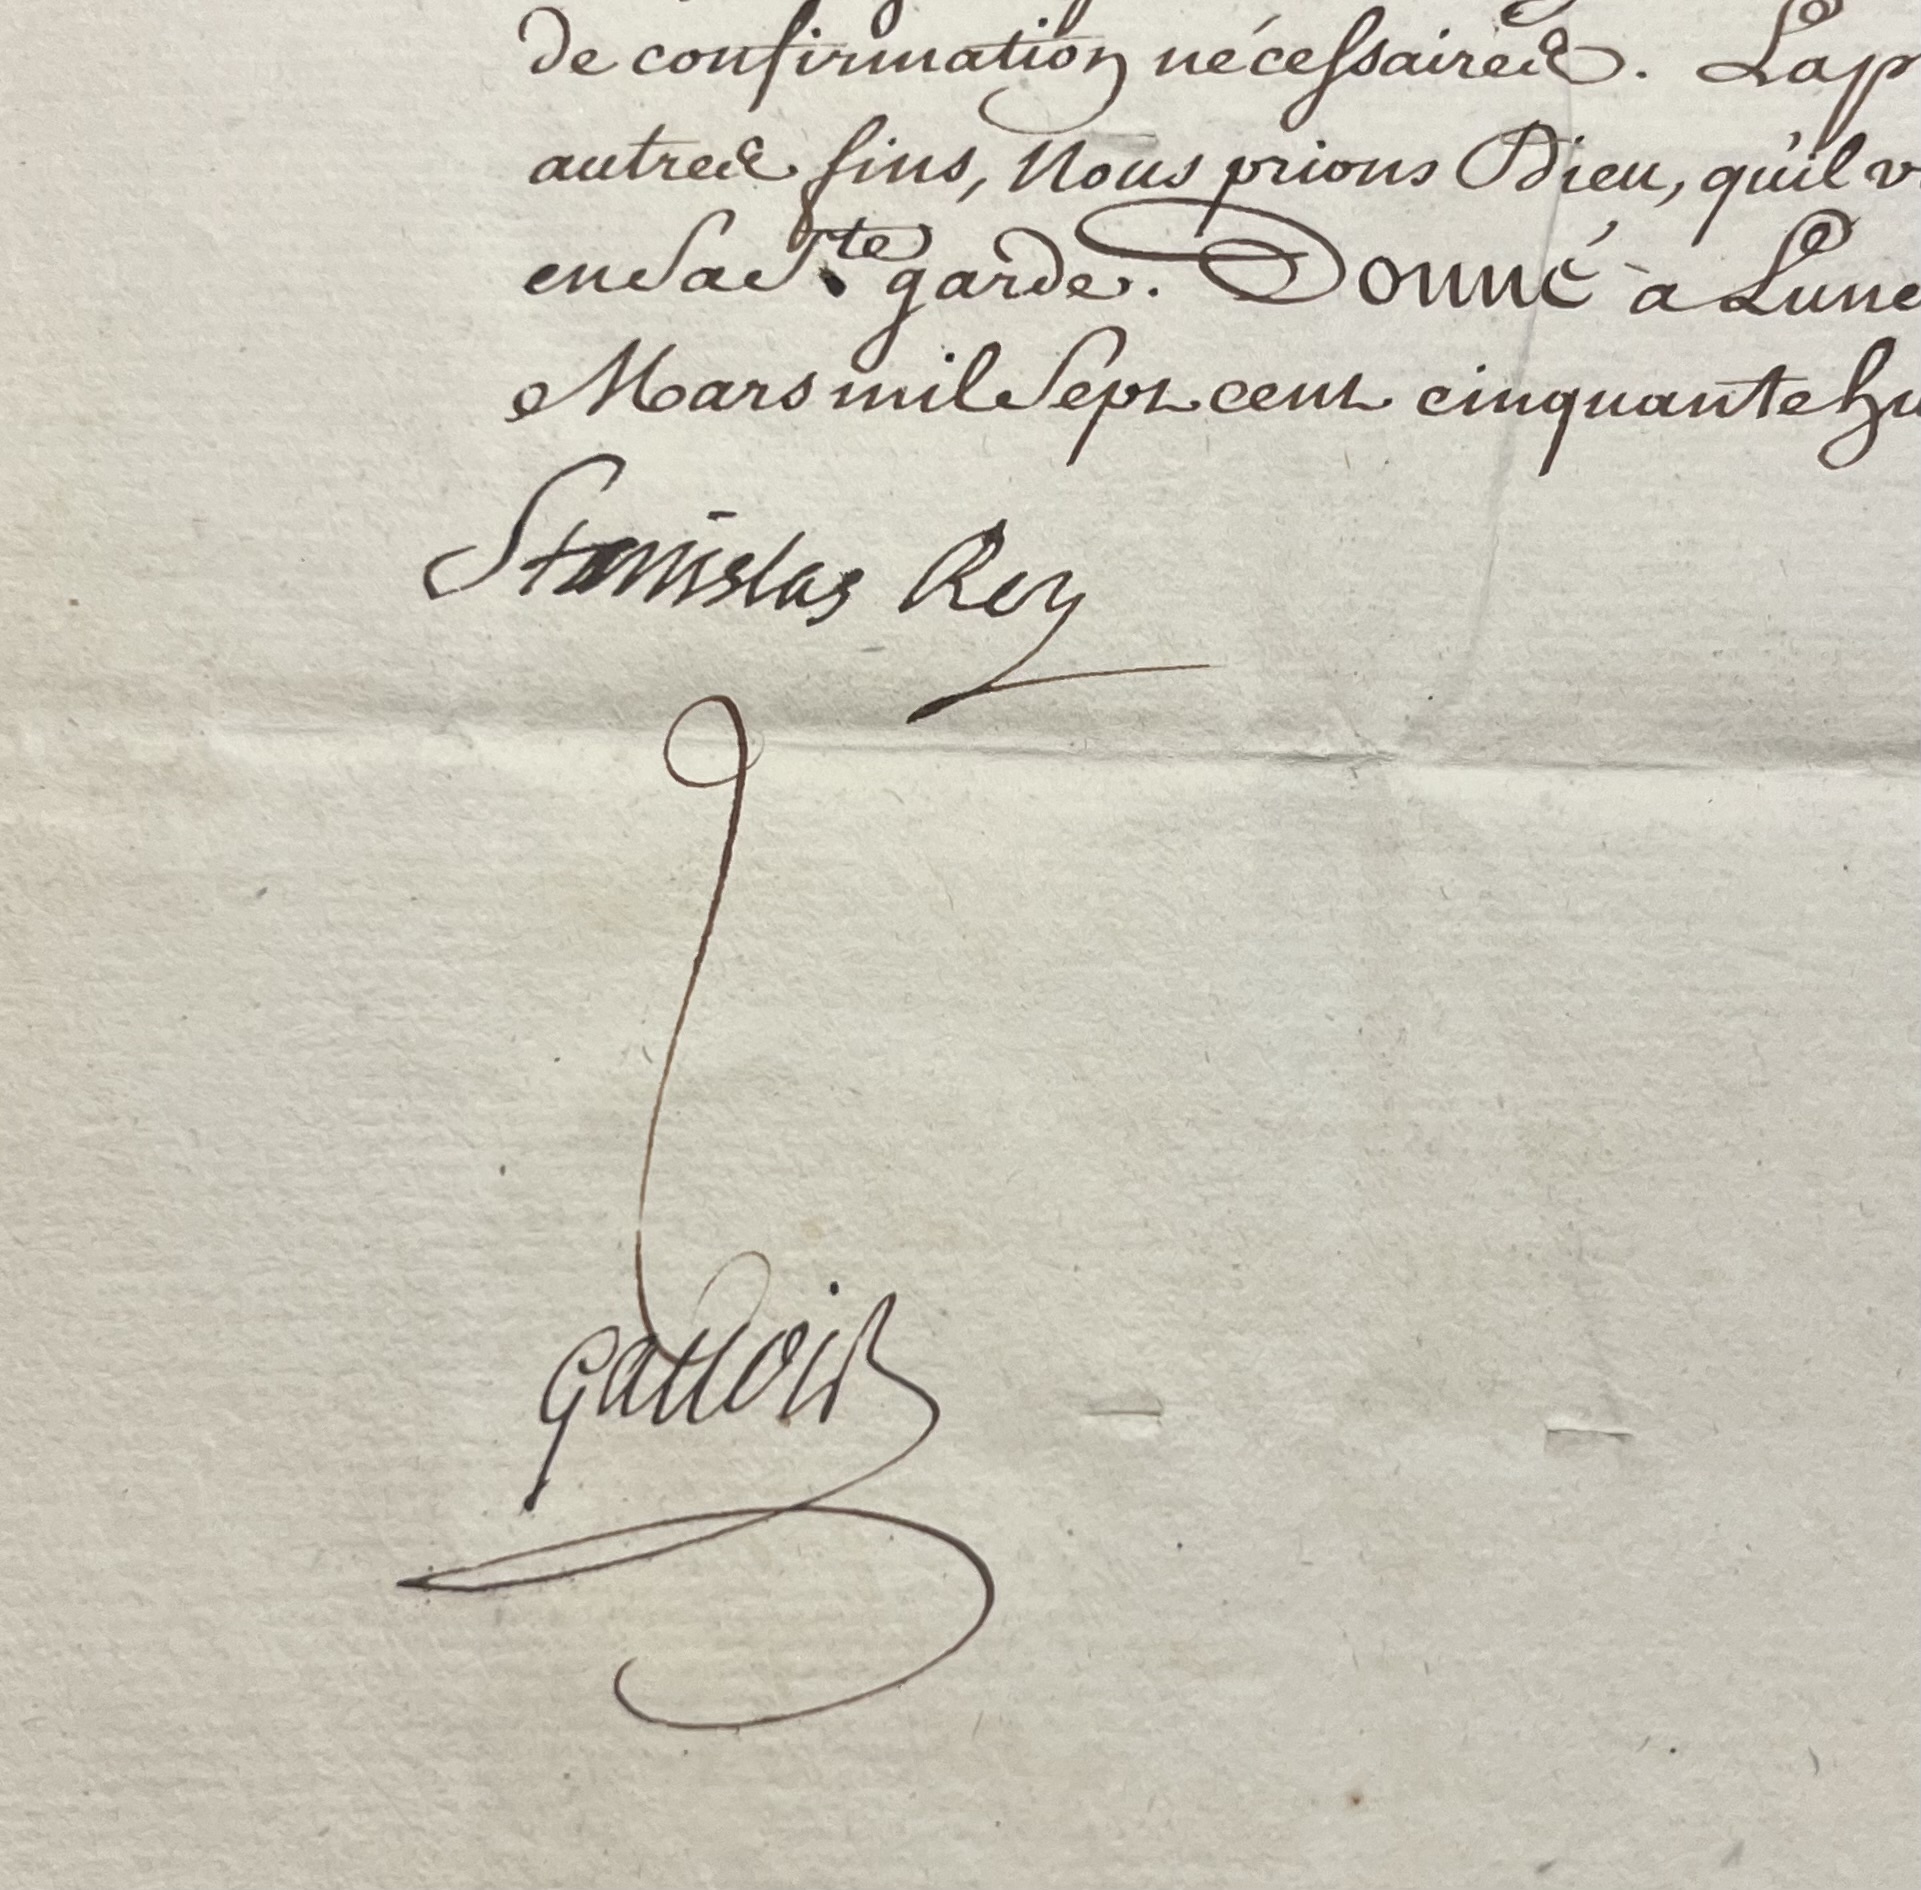 de confirmation nécessaires. Lap
autres fins, Nous prions Dieu, qu'il v
en Sa Ste garde. Donné à Lune
Mars mil Sept cent cinquante hu
Stanislas Roy
Gallois